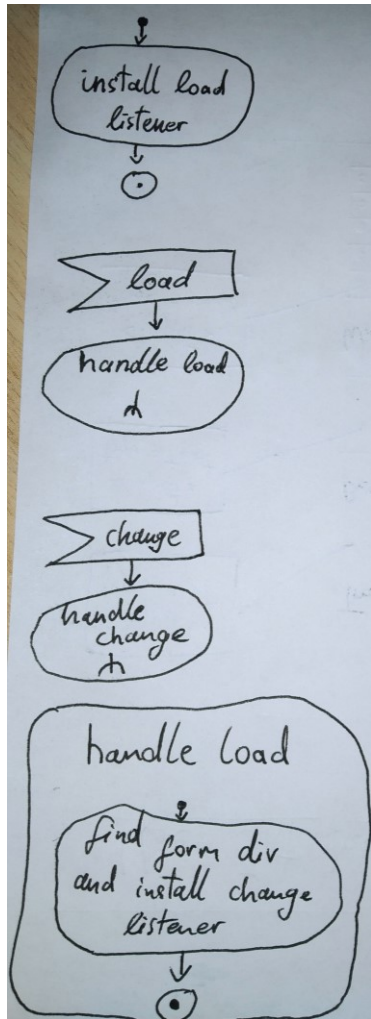 install load
listener
load
handle load
change
handle
change
handle load
find form div
and install change
listener